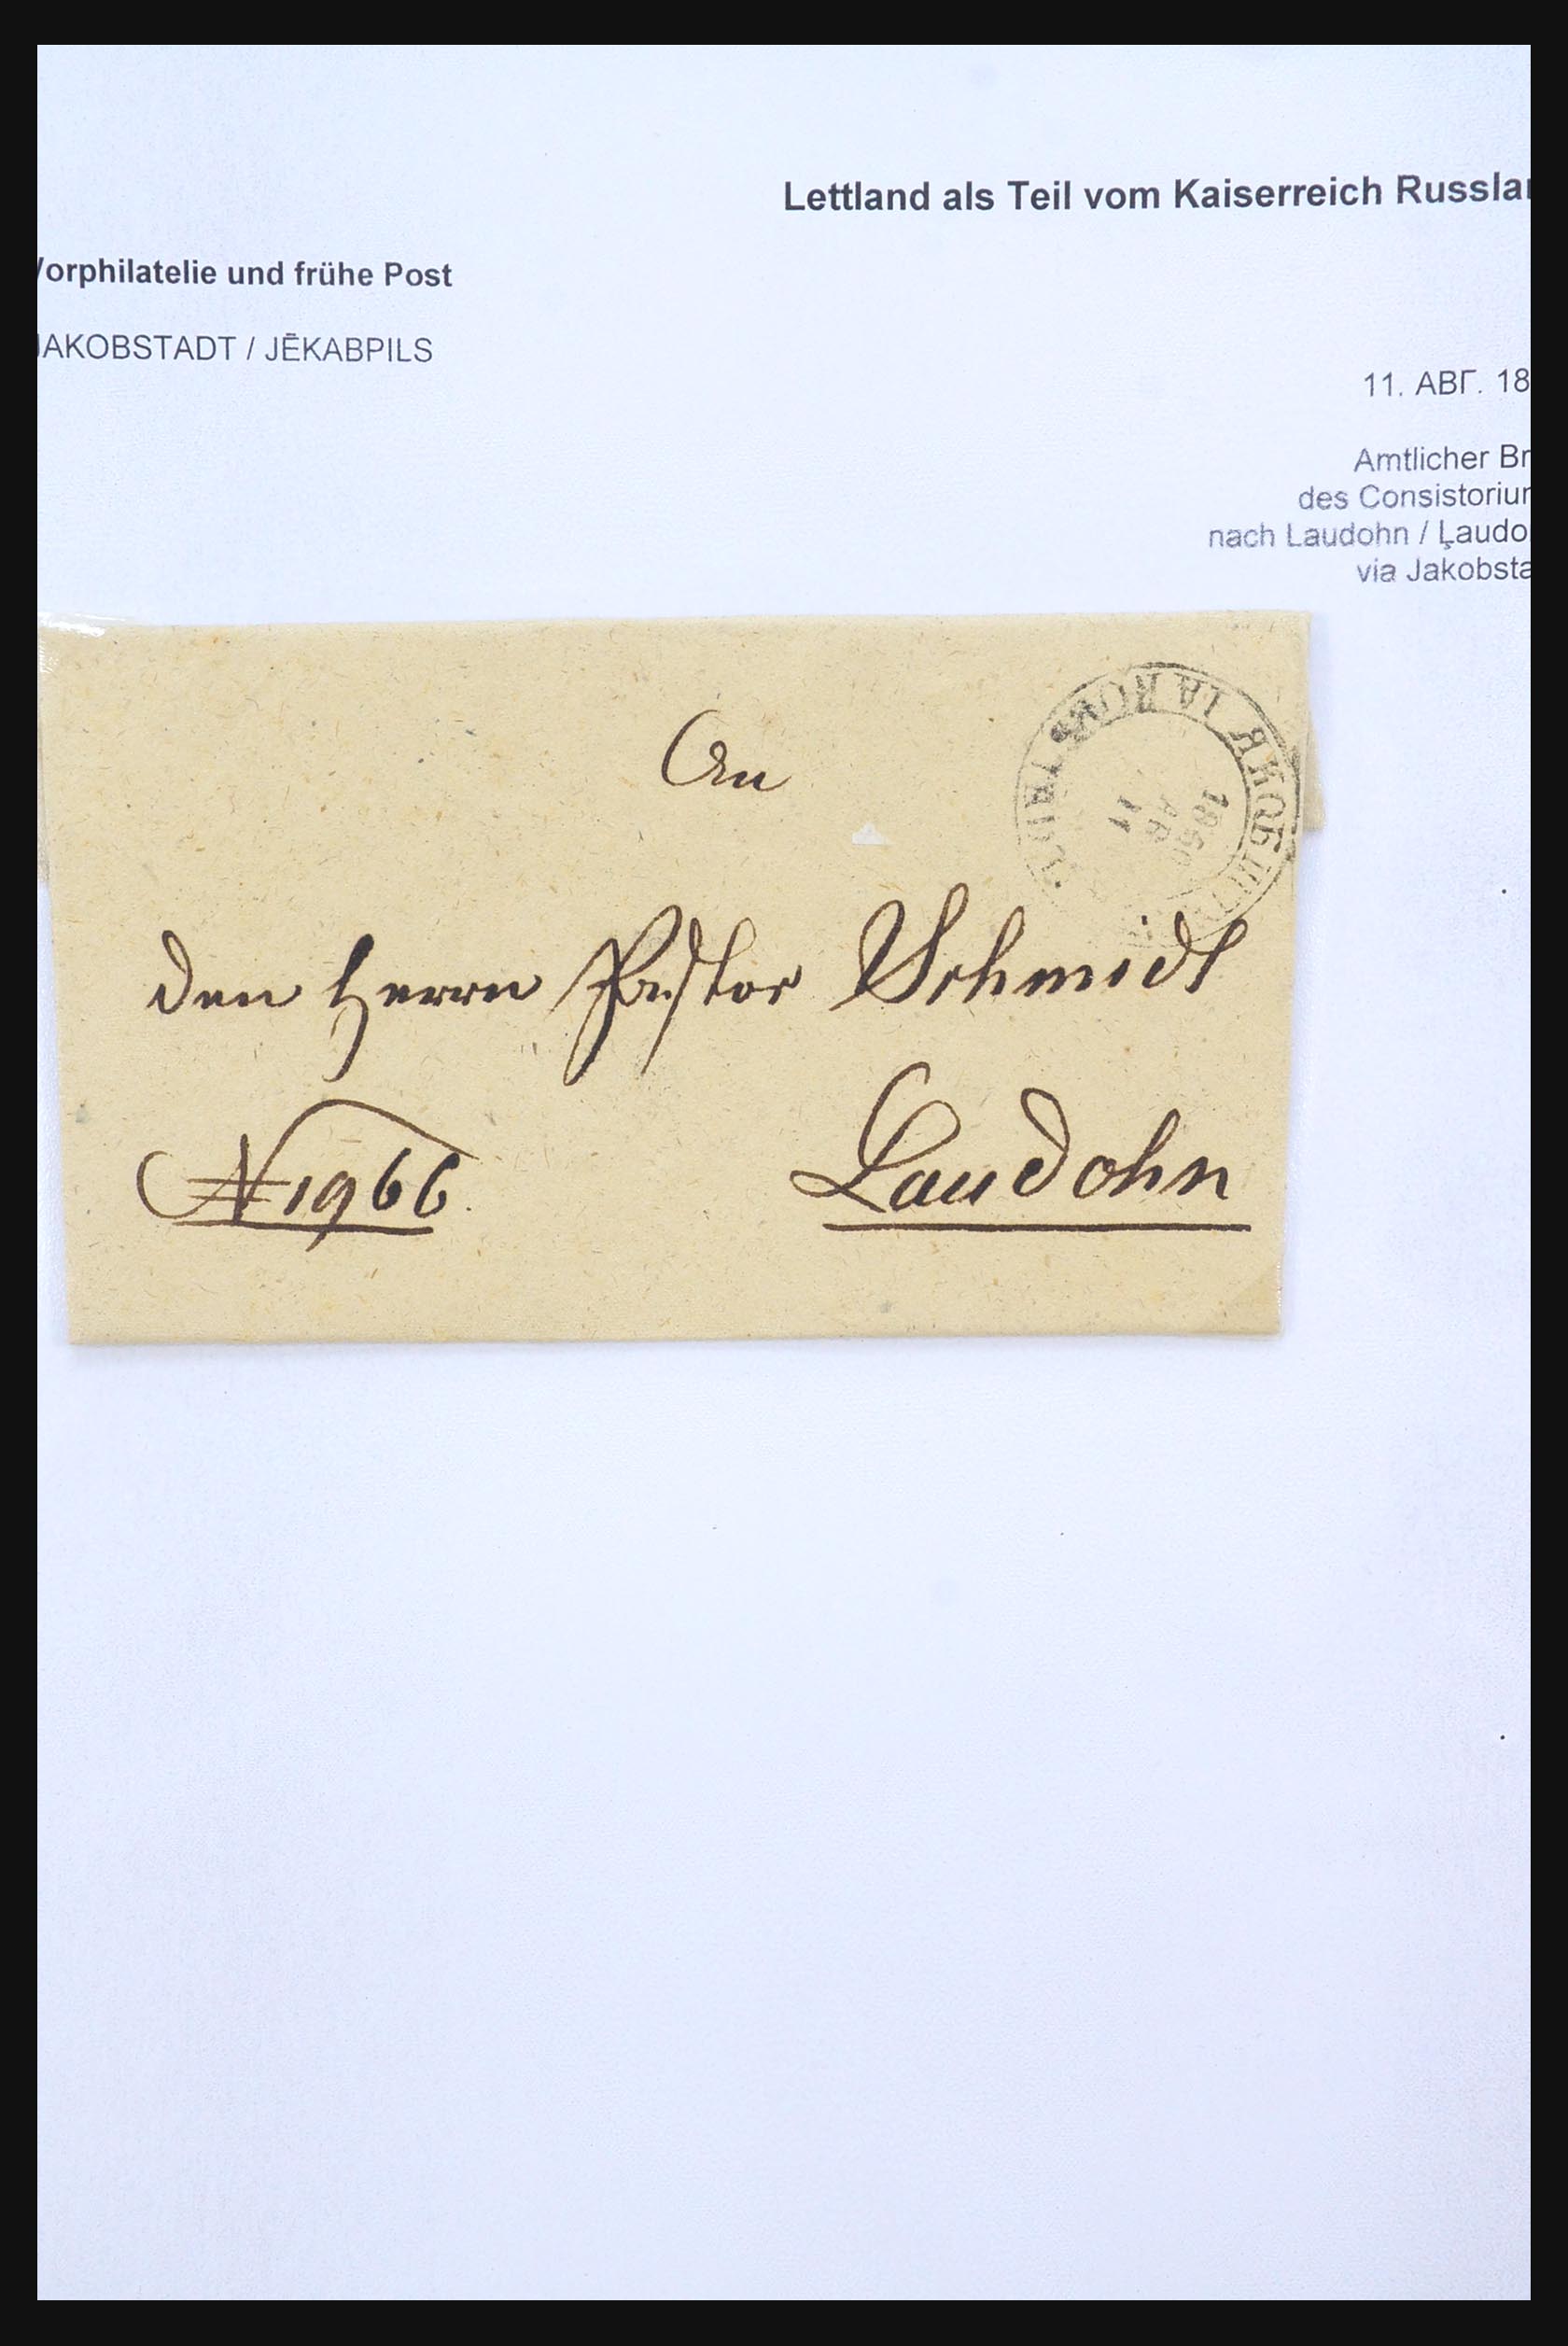 Lettland als Teil vom Kaiserreich Russlan
Vorphilatelie und frühe Post
JAKOBSTADT / JĒKABPILS
11. АВГ. 18
Amtlicher Br
des Consistoriur
nach Laudohn / Ļaudo
via Jakobsta
An
den Herrn Pastor Schmidt
N 1966.
Laudohn
11